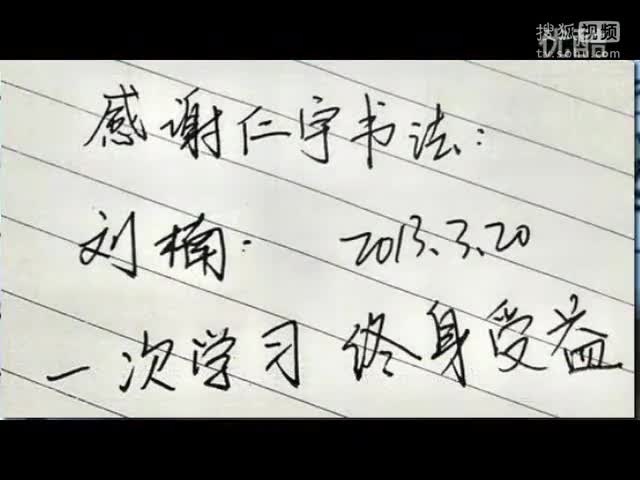 搜狐视频
优酷
tv.sohu.com
感谢仁宇书法：
刘楠： 2013.3.20
一次学习 终身受益